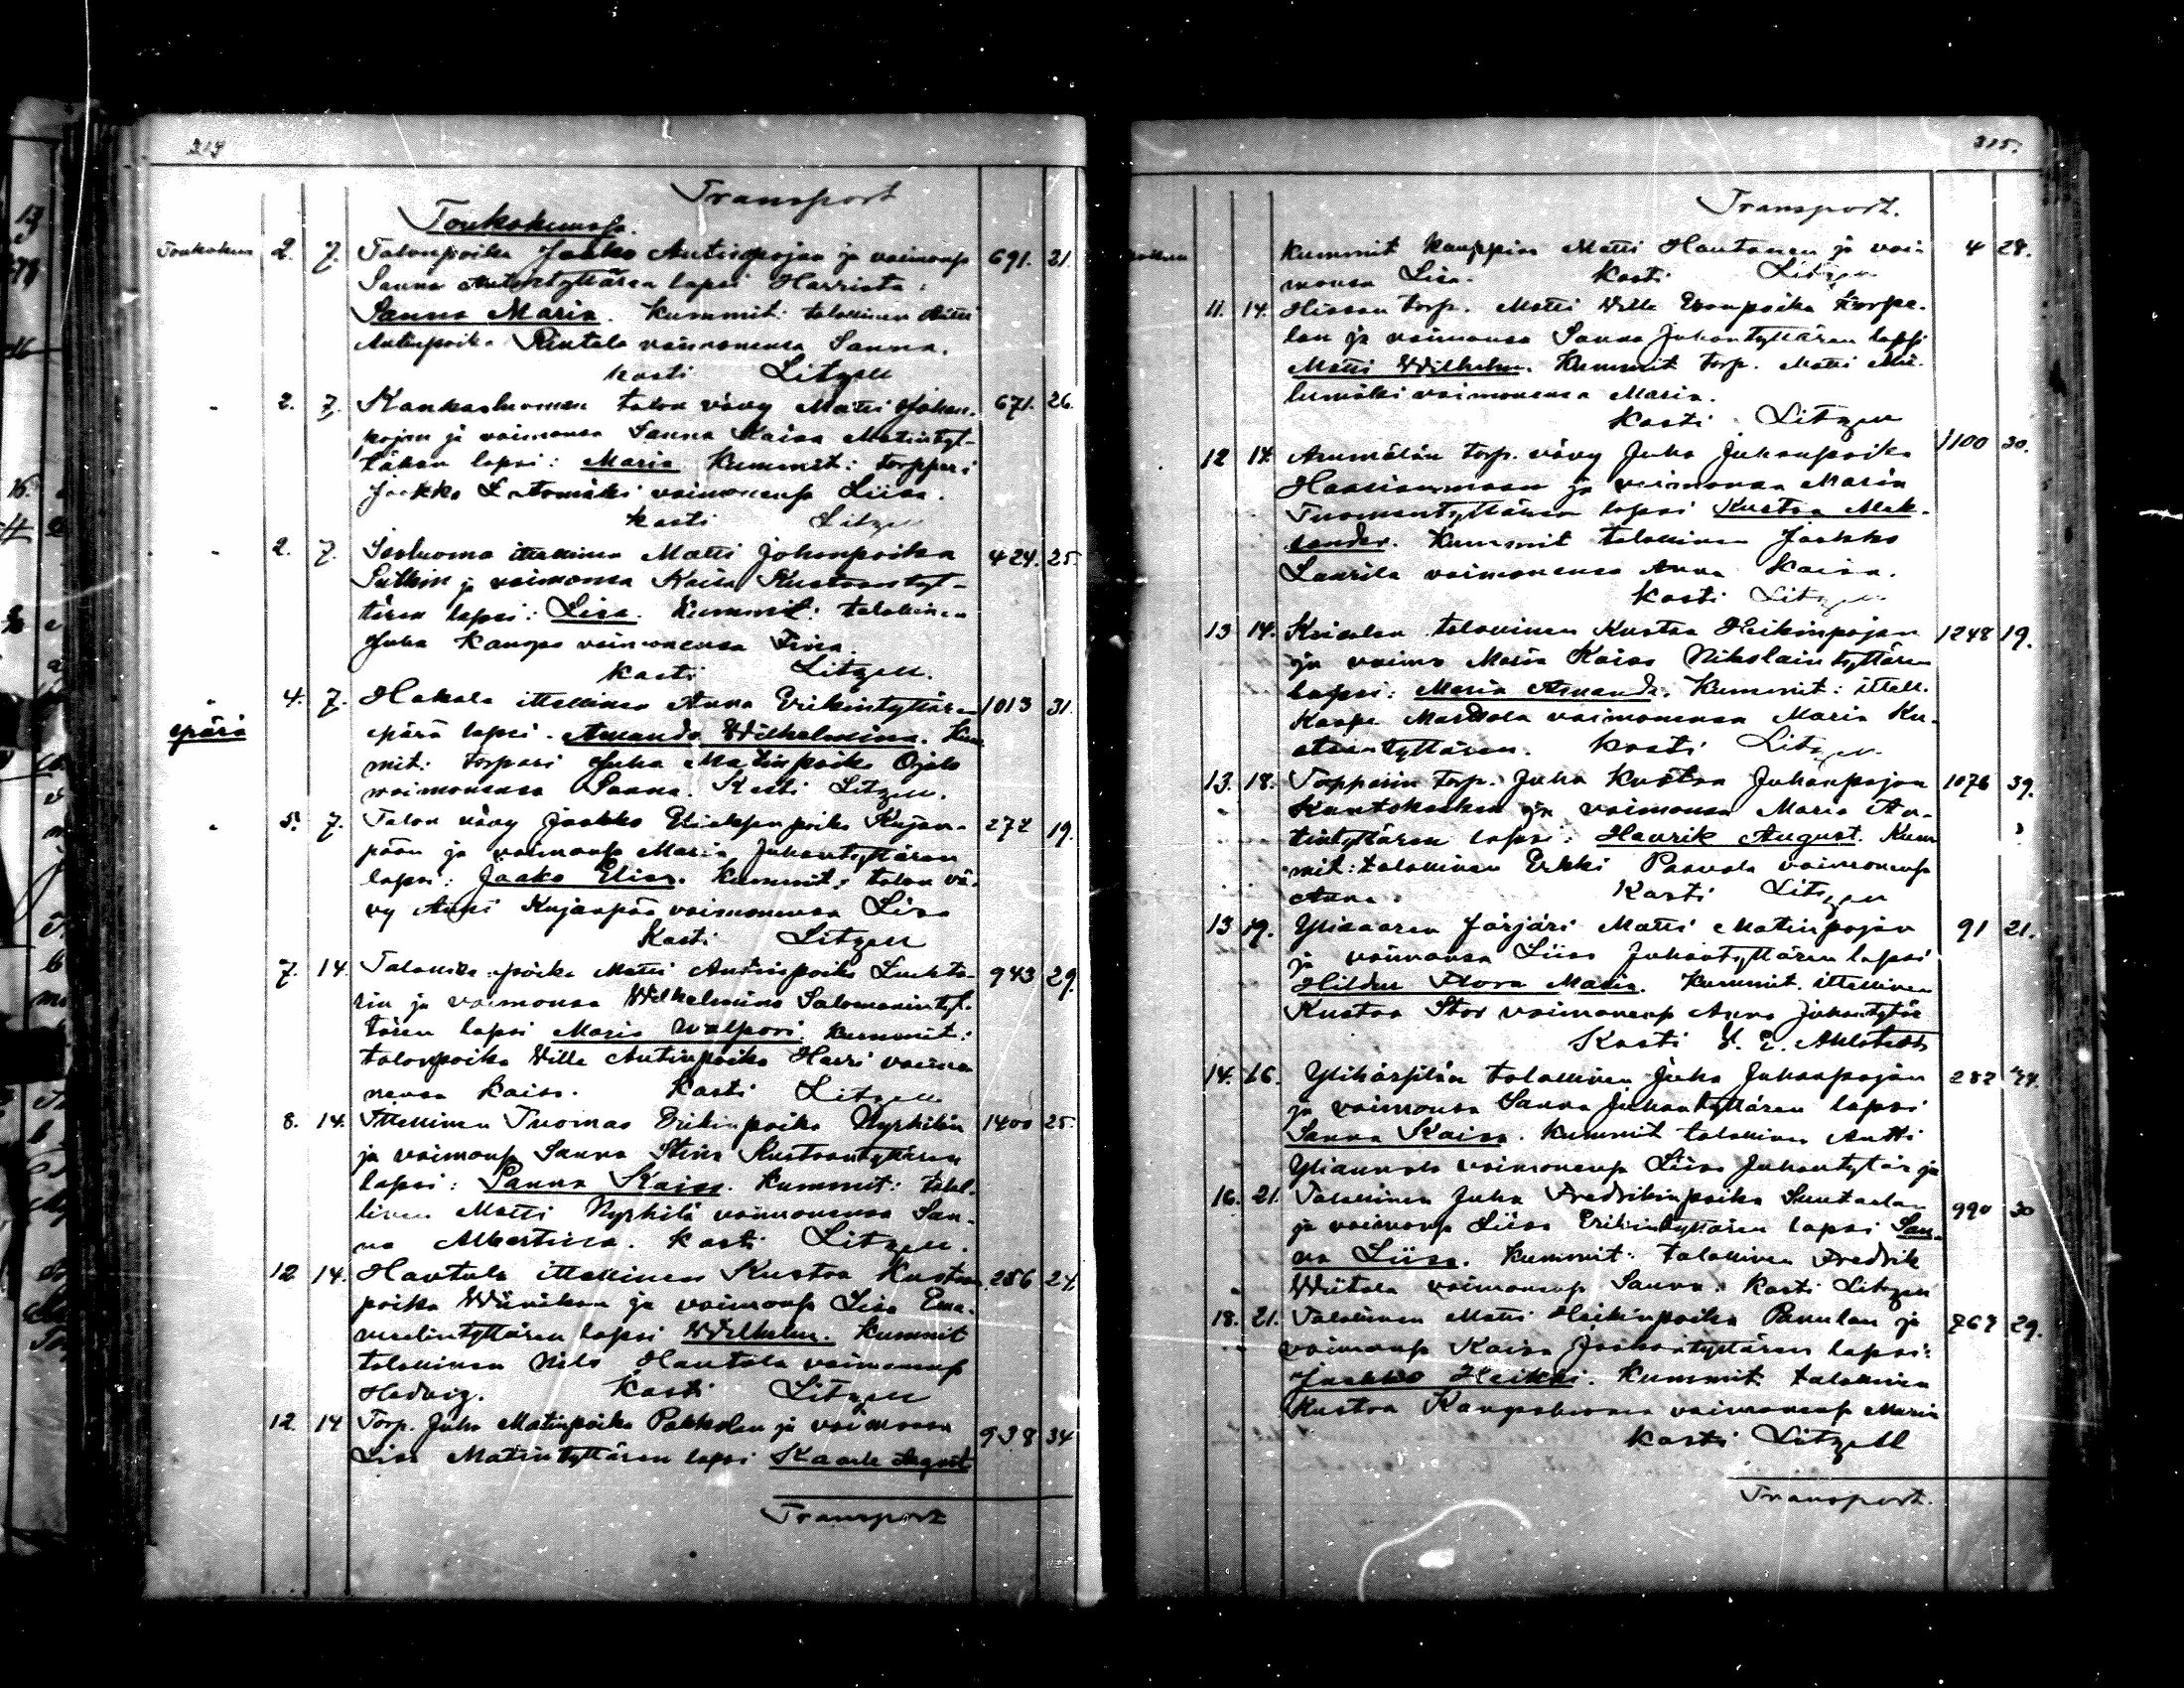 219
Transport
Toukokuussa.
Toukokuu 2. 7. Talonpoika Jaakko Antinpojan ja vaimonsa 691. 21.
Sanna Antintyttären lapsi Harrista:
Sanna Maria. Kummit: talollinen Matti
Antinpoika Rintala vaimonensa Sanna.
Kasti Litzen
2. 7. Kankaaluoman talon vävy Matti Johan- 671. 26.
pojan ja vaimonsa Sanna Kaisa Matintyt-
tären lapsi: Maria Kummit: torppari
Jaakko Latomäki vaimonensa Liisa.
Kasti Litzen
2. 7. Isoluoma ittellinen Matti Johanpoika 424. 25.
ja vaimonsa Kaisa Kustaantyt-
tären lapsi: Lisa. Kummit: talollinen
Juha Kangas vaimonensa Fina.
Kasti Litzen.
4. 7. Hakala ittellinen Anna Erikintyttären 1013 31.
epärä
epärä lapsi. Amanda Wilhelmiina. Kum
mit: torpari Juha Matinpoika Ojala
vaimonensa Sanna. Kasti Litzen.
5. 7. Talon vävy Jaakko Eliaksenpoika Kujan- 272 19.
pään ja vaimonsa Maria Juhantyttären
lapsi: Jaako Elias. Kummit: talon vä-
vy Antti Kujanpää vaimonensa Lisa
Kasti Litzen
7. 14. Talollisen poika Matti Antinpoika Luhta- 943 29.
rin ja vaimonsa Wilhelmina Salomonintyt-
tären lapsi Maria Walpori. Kummit:
talonpoika Wille Antinpoika Harri vaimo
nensa Kaisa. Kasti Litzen
8. 14. Ittellinen Tuomas Erikinpoika Nyrhilän 1400 25.
ja vaimonsa Sanna Stina Kustaantyttären
lapsi: Sanna Kaisa. Kummit: talol-
linen Matti Nyrhilä vaimonensa San-
na Albertina. Kasti Litzen.
12 14. Hautala ittellinen Kustaa Kustaan 286 24.
poika Wiinikan ja vaimonsa Lisa Ema-
nuelintyttären lapsi Wilhelm. Kummit
talollinen Nils Hautala vaimonensa
Hedvig. Kasti Litzen
12. 14 Torp. Juho Matinpoika Pakkalan ja vaimonsa 938 34
Lisa Matintyttären lapsi Kaarle August
Transport
315.
Transport.
Kummit Kauppias Matti Hautanen ja vai- 4 28.
monsa Lisa. Kasti Litzen
11. 14. Hissan torp. Matti Wille Eronpoika Korpe-
lan ja vaimonsa Sanna Juhantyttären lapsi
Matti Wilhelm. Kummit torp. Matti
lumäki vaimonensa Maria.
Kasti Litzen
12 14. Ammälän torp. vävy Juha Juhanpoika 1100 30.
Haarianmaan ja vaimonsa Maria
Tuomaantyttären lapsi Kustaa Alek-
sander. Kummit talollinen Jaakko
Laurila vaimonensa Anna Kaisa.
Kasti Litzen
13 14. talollinen Kustaa Heikinpojan 1248 19.
ja vaimo Maria Kaisa Nikolaintyttären
lapsi: Maria Amanda. Kummit: ittell.
Kaape Mattola vaimonensa Maria Ku-
staantyttären. Kasti Litzen
13. 18. Topparin torp. Juha Kustaa Juhanpojan 1076 39.
Kantokosken ja vaimonsa Maria An-
tintyttären lapsi: Henrik August. Kum
mit: talollinen Erkki Paavola vaimonensa
Anna. Kasti Litzen
13 19. Ylisaaren Järjäri Matti Matinpojan 91 21.
ja vaimonsa Liisa Juhantyttären lapsi
Hildur Flora Maria. Kummit. ittellinen
Kustaa Stor vaimonensa Anna Juhantytär
Kasti Ahlstedt
14. 16. talollinen Juha Juhanpojan 282
ja vaimonsa Sanna Juhantyttären lapsi
Sanna Kaisa. Kummit talollinen Antti
Yliannala vaimonensa Liisa Juhantytär ja
16. 21. Talollinen Juha Fredrikinpoika Luutaalan 990 30
ja vaimonsa Liisa Erikintyttären lapsi San-
na Liisa. Kummit: talollinen Fredrik
Wiitala vaimonensa Sanna. Kasti Litzen
18. 21. Talollinen Matti Heikinpoika Panulan ja 767 29.
vaimonsa Kaisa Jaakontyttären lapsi:
Jaakko Heikki. Kummit: talollinen
Kustaa Kangasluoma vaimonensa Maria
Kasti Litzell
Transport.